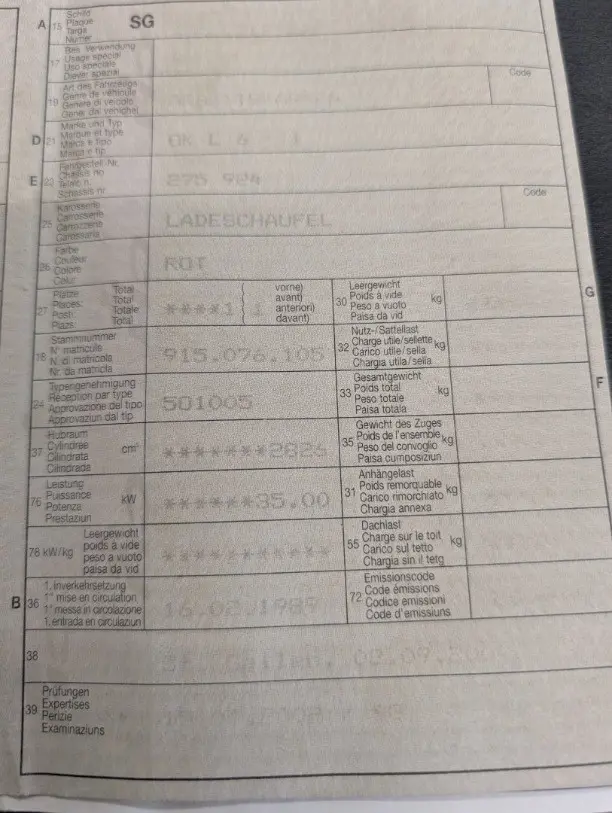 A 15 Schild SG
Plaque
Targa
Numer
17 Bes. Verwendung
Usage spécial
Uso speciale
Diever spezial
19 Art des Fahrzeugs Code
Genre de véhicule
Genere di veicolo
Gener dal vehichel
D 21 Marke und Typ
Marque et type
Marca e tipo
Marca e tip
E 23 Fahrgestell-Nr. 275 924
Châssis no
Telaio n.
Schassis nr.
25 Karosserie LADESCHAUFEL Code
Carrosserie
Carrozzeria
Carossaria
26 Farbe ROT
Couleur
Colore
Colur
27 Plätze Total ****1 ( vorne)
Places: Total ( avant)
Posti: Totale ( anteriori)
Plazs: Total ( davant)
30 Leergewicht kg G
Poids à vide
Peso a vuoto
Paisa da vid
18 Stammnummer 915.076.105
N° matricule
N. di matricola
Nr. da matricla
32 Nutz-/Sattellast kg
Charge utile/sellette
Carico utile/sella
Chargia utila/sella
24 Typengenehmigung 501005
Réception par type
Approvazione del tipo
Approvaziun dal tip
33 Gesamtgewicht kg F
Poids total
Peso totale
Paisa totala
37 Hubraum cm³ *******2826
Cylindrée
Cilindrata
Cilindrada
35 Gewicht des Zuges kg
Poids de l'ensemble
Peso del convoglio
Paisa cumposiziun
76 Leistung kW ******35.00
Puissance
Potenza
Prestaziun
31 Anhängelast kg
Poids remorquable
Carico rimorchiato
Chargia annexa
78 kW/kg Leergewicht ***********
poids à vide
peso a vuoto
paisa da vid
55 Dachlast kg
Charge sur le toit
Carico sul tetto
Chargia sin il tetg
B 36 1. Inverkehrsetzung 16.02.1989
1re mise en circulation
1a messa in circolazione
1. entrada en circulaziun
72 Emissionscode
Code émissions
Codice emissioni
Code d'emissiuns
38 St. Gallen,
39 Prüfungen
Expertises
Perizie
Examinaziuns